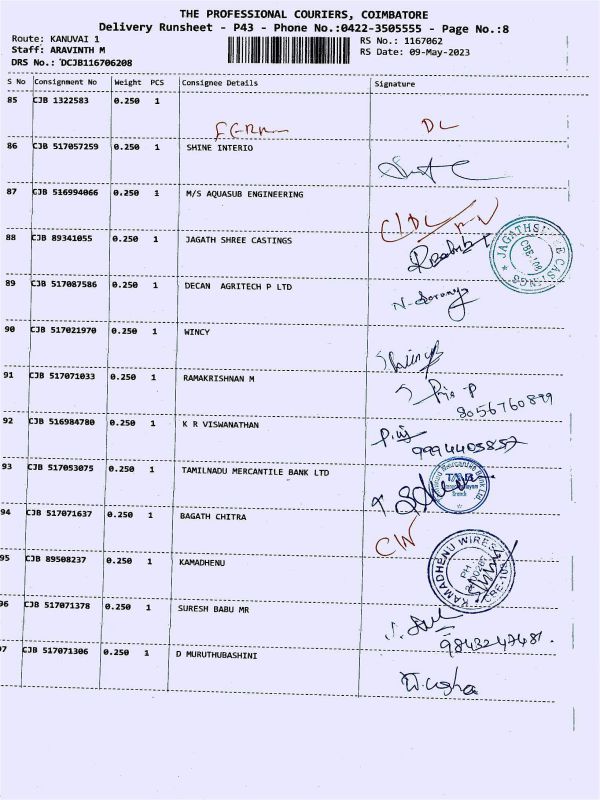 THE PROFESSIONAL COURIERS, COIMBATORE
Delivery Runsheet - P43 - Phone No.:0422-3505555 - Page No.:8
Route: KANUVAI 1 RS No.: 1167062
Staff: ARAVINTH M RS Date: 09-May-2023
DRS No.: DCJB116706208
S No Consignment No Weight PCS Consignee Details Signature
85 CJB 1322583 0.250 1
DL
86 CJB 517057259 0.250 1 SHINE INTERIO
87 CJB 516994066 0.250 1 M/S AQUASUB ENGINEERING
88 CJB 89341055 0.250 1 JAGATH SHREE CASTINGS
89 CJB 517087586 0.250 1 DECAN AGRITECH P LTD
90 CJB 517021970 0.250 1 WINCY
91 CJB 517071033 0.250 1 RAMAKRISHNAN M
8056760899
92 CJB 516984780 0.250 1 K R VISWANATHAN
9994403857
93 CJB 517053075 0.250 1 TAMILNADU MERCANTILE BANK LTD
94 CJB 517071637 0.250 1 BAGATH CHITRA
CW
95 CJB 89508237 0.250 1 KAMADHENU
KAMADHENU WIRES
96 CJB 517071378 0.250 1 SURESH BABU MR
9843247481.
97 CJB 517071306 0.250 1 D MURUTHUBASHINI